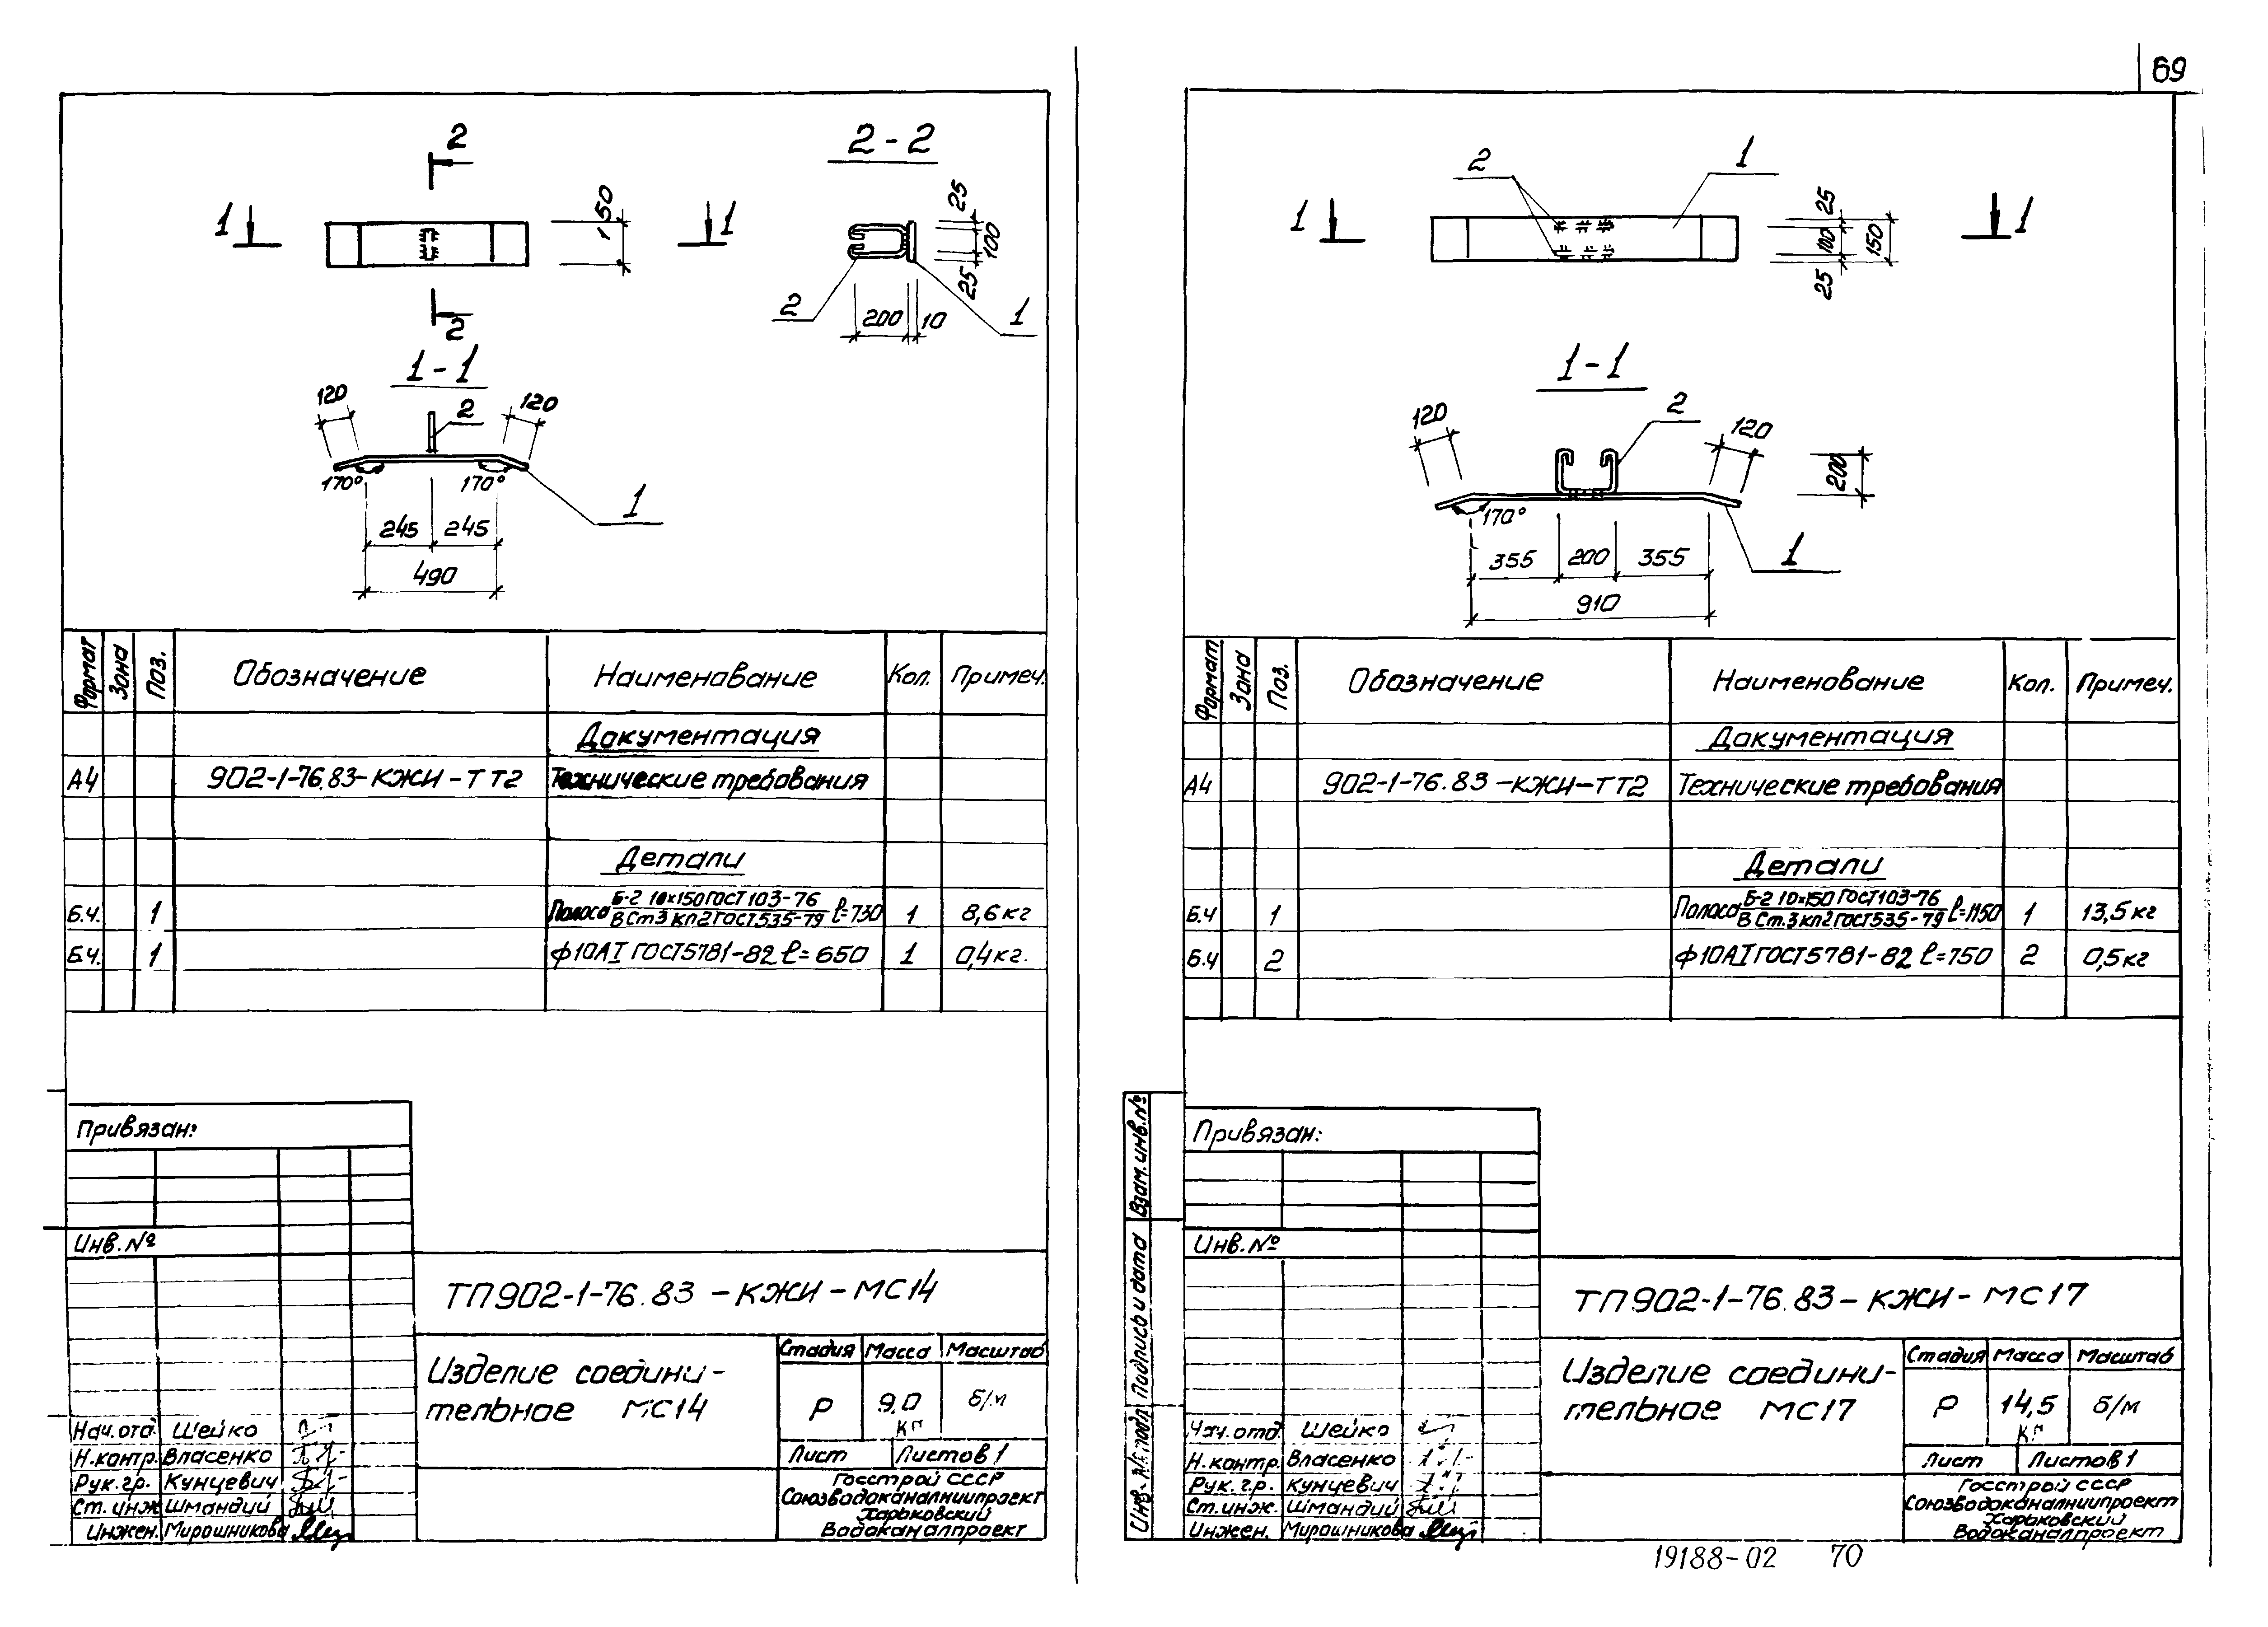 69
2
2 - 2
1
1
150
25
100
25
2
200
10
1
2
1 - 1
120
2
120
170°
170°
1
245
245
490
Формат
Зона
Поз.
Обозначение
Наименование
Кол.
Примеч.
Документация
А4
902-1-76.83-КЖИ-ТТ2
Технические требования
Детали
Б.ч.
1
Полоса Б-2 10×150 ГОСТ 103-76
ВСт3кп2 ГОСТ 535-79
ℓ=730
1
8,6 кг
Б.ч.
1
ф10АI ГОСТ 5781-82 ℓ=650
1
0,4 кг.
Привязан:
Инв. №
ТП902-1-76.83-КЖИ-МС14
Изделие соедини-
тельное МС14
Стадия
Масса
Масштаб
Р
9,0
кг
б/м
Лист
Листов 1
Нач.отд. Шейко
Н.контр. Власенко
Рук.гр. Кунцевич
Ст.инж Шмандий
Инжен. Мирошникова
Госстрой СССР
Союзводоканалниипроект
Харьковский
Водоканалпроект
2
1
1
1
25
100
150
25
1 - 1
120
2
120
200
170°
1
355
200
355
910
Формат
Зона
Поз.
Обозначение
Наименование
Кол.
Примеч.
Документация
А4
902-1-76.83-КЖИ-ТТ2
Технические требования
Детали
Б.ч
1
Полоса Б-2 10×150 ГОСТ 103-76
ВСт.3кп2 ГОСТ 535-79
ℓ=1150
1
13,5 кг
Б.ч
2
ф10АI ГОСТ 5781-82 ℓ=750
2
0,5 кг
Взам.инв.№
Подпись и дата
Инв. № подл
Привязан:
Инв. №
ТП902-1-76.83-КЖИ-МС17
Изделие соедини-
тельное МС17
Стадия
Масса
Масштаб
Р
14,5
кг
б/м
Лист
Листов 1
Нач.отд. Шейко
Н.контр. Власенко
Рук.гр. Кунцевич
Ст.инж. Шмандий
Инжен. Мирошникова
Госстрой СССР
Союзводоканалниипроект
Харьковский
Водоканалпроект
19188-02 70